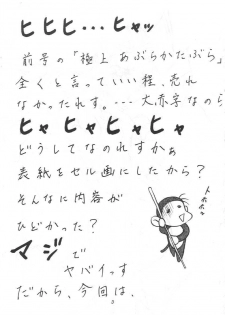 ヒヒヒ・・・ヒャッ
前号の「極上あぶらかたぶら」
全くと言っていい程、売れ
なかったれす。---大赤字なのら
ヒャヒャヒャヒャ
どうしてなのれすかぁ
表紙をセル画にしたから？
そんなに内容が
ひどかった？
マジで
ヤバイっす
だから、今回は、
トホホ〜